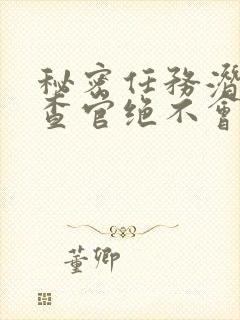 秘密任務潛
查官绝不會
董卿